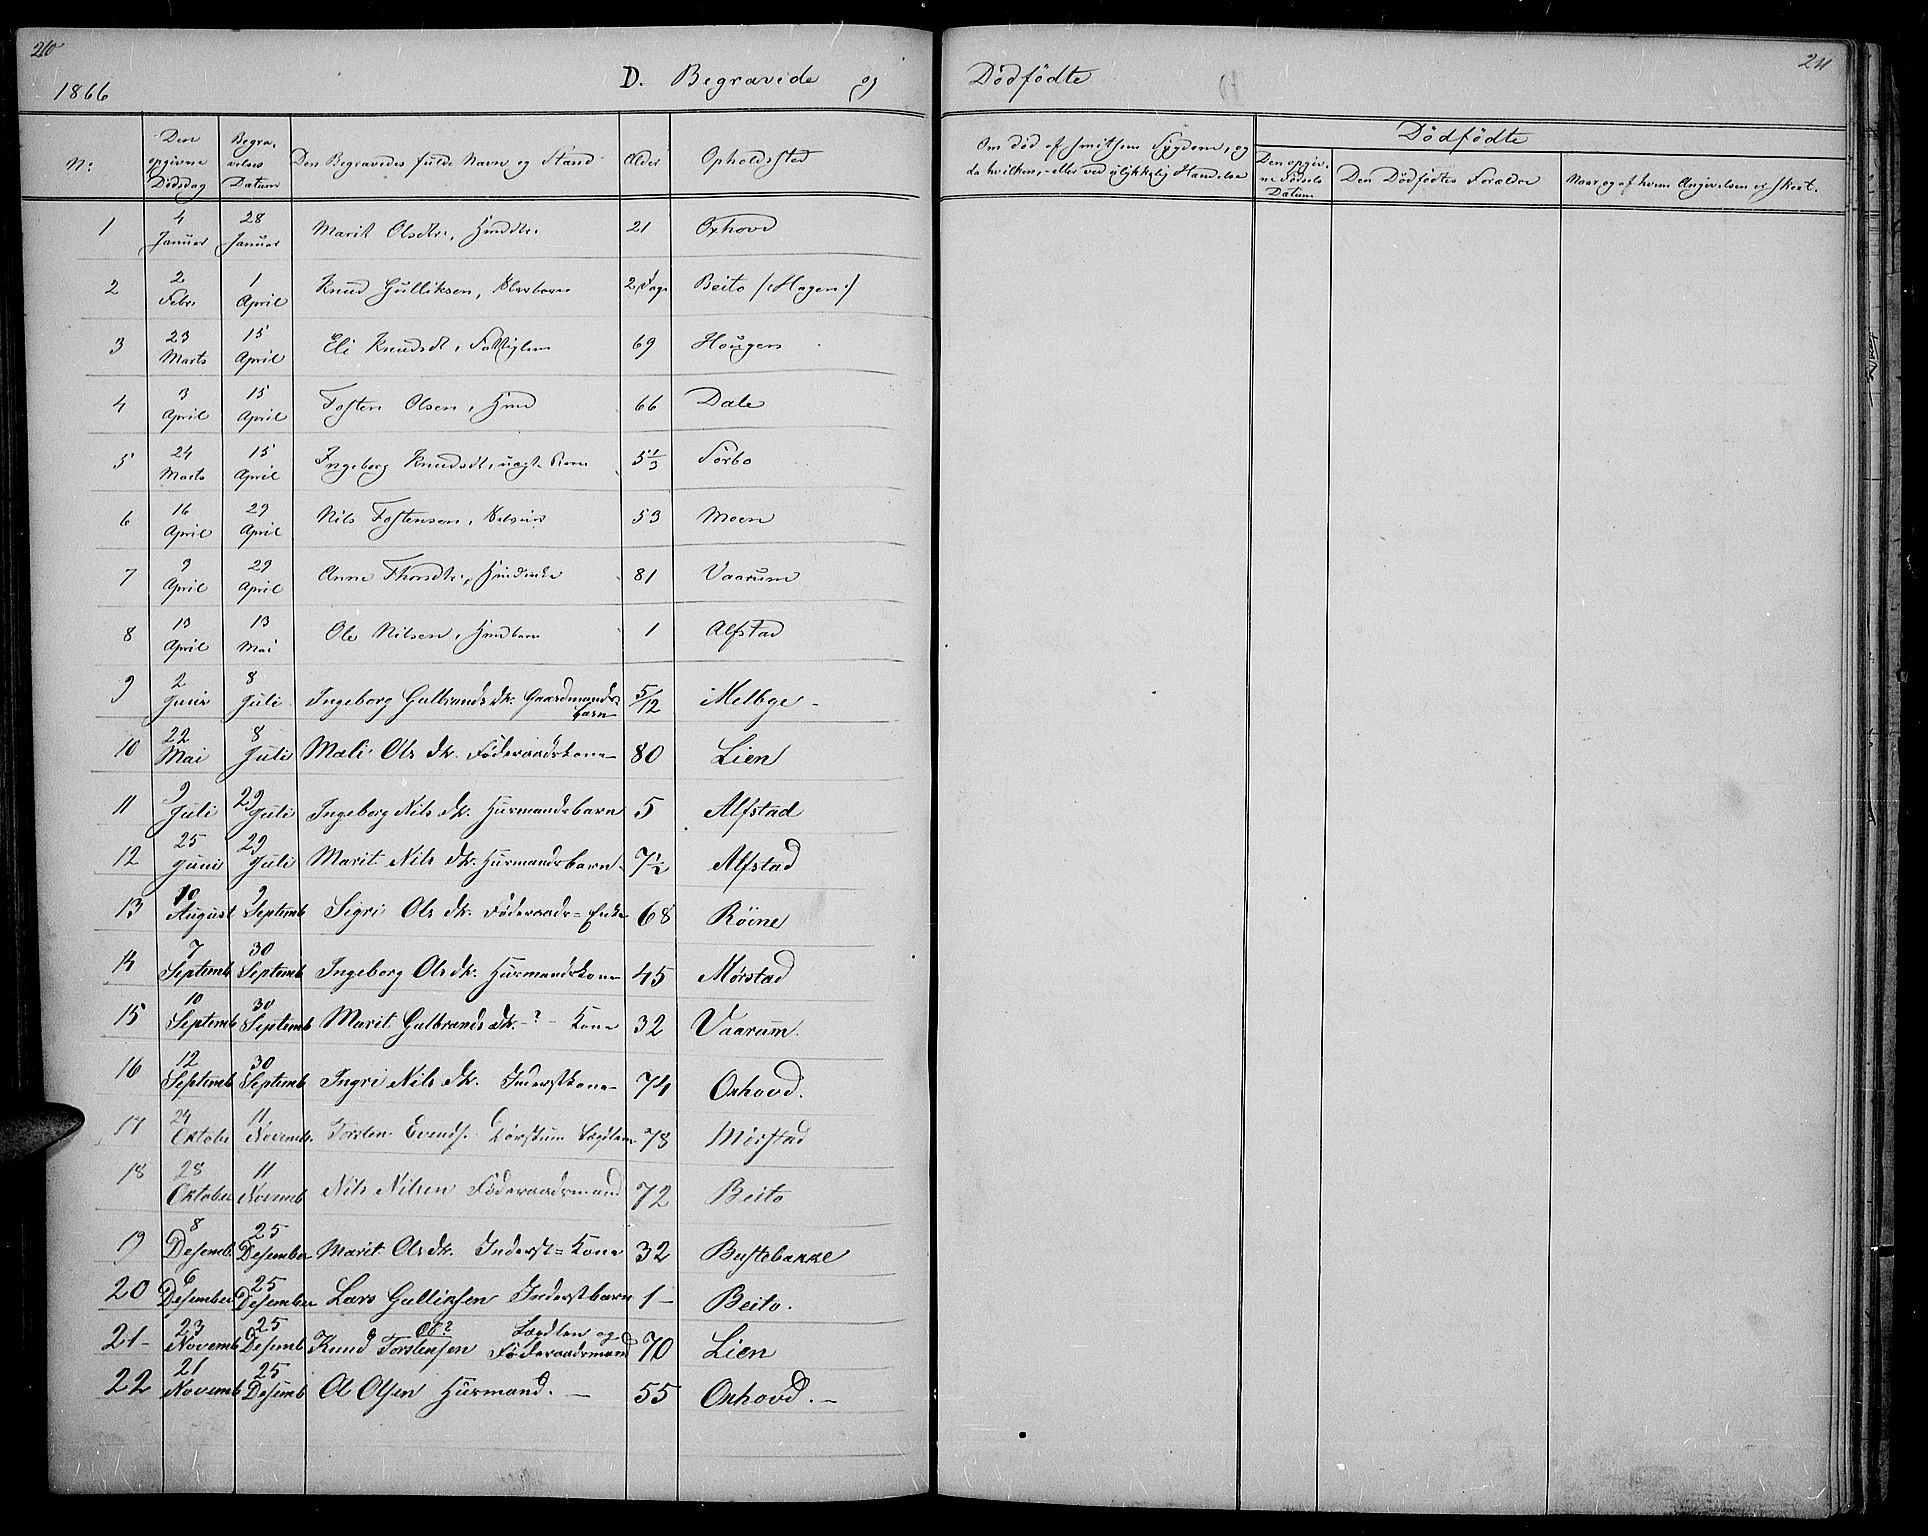 210
1866
D. Begravede og
No:
Den opgivne Dødsdag
Begravelses Datum
Den Begravedes fulde Navn og Stand
Alder
Opholdssted
1 4 Januar 28 Januar Marit Olsdtr, 21 Oxhovd
2 2 Febr. 1 April Knud Gulliksen, 2 Dage Beito (Hagen)
3 23 Marts 15 April Eli Knudsdt, Fattiglem 69 Hougen
4 3 April 15 April Tosten Olsen, 66 Dale
5 24 Marts 15 April Ingeborg Knudsdt, uægte Barn 5 1/3 Sørbo
6 16 April 29 April Nils Tostensen, 53 Moen
7 9 April 29 April Anne Thorsdtr, 81 Vaarum
8 13 April 13 Mai Ole Nilsen, 1 Alfstad
9 2 Juni 8 Juli Ingeborg Gulbrandsdtr. Gaardmandsbarn 5/12 Melbye
10 22 Mai 8 Juli Mæli Olsdtr. Föderaadskone 80 Lien
11 9 Juli 29 Juli Ingeborg Nilsdtr. Husmandsbarn 5 Alfstad
12 25 Juni 29 Juli Marit Nilsdtr. Husmandsbarn 7½ Alfstad
13 10 August 9 Septemb Sigri Olsdtr. Föderaads=Enke 68 Röine
14 7 Septemb 30 Septemb Ingeborg Olsdtr. Husmandskone 45 Mørstad
15 10 Septemb 30 Septemb Marit Gulbrandsdtr. - ? - Kone 32 Vaarum.
16 12 Septemb 30 Septemb Ingri Nilsdtr. Inderstkone 74 Oxhovd.
17 24 Oktobe 11 Novemb. Torsten Evends. 78 Mörstad
18 28 Oktober 11 Novemb Nils Nilsen Föderaadsmand 72 Beito
19 8 Desemb. 25 Desember Marit Olsdtr. Inderst=Kone 32 Bustebakke
20 6 Desember 25 Desember Lars Gulliksen Inderstbarn 1 - Beito.
21 - 23 Novemb 25 Desemb Knud Torstensen Lægdlem og Föderaadsmand 70 Lien
22 21 Novemb 25 Desemb Ol Olsen Husmand. - 55 Oxhovd. -
211
Dødfødte
Om død af smitsom Sygdom, og
da hvilken, eller ved ulykkelig Hændelse
Dødfødte
Den opgivne Fødsels Datum
Den Dødfødtes Forældre
Naar og af hvem Angivelsen er skeet.